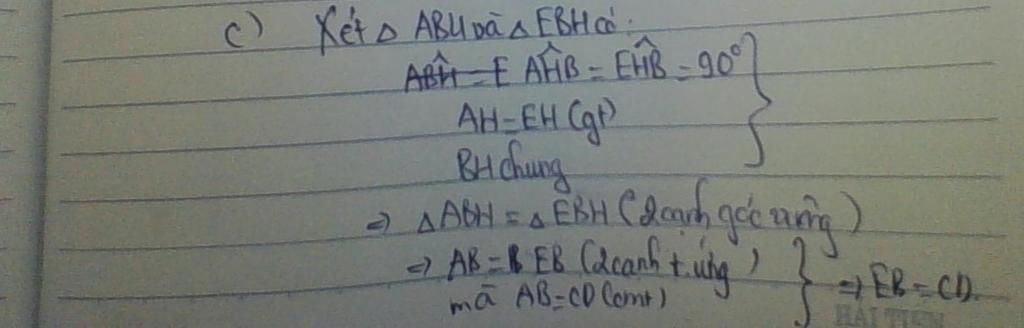 c) Xét △ ABH và △ EBH có:
A͟B͟H͟ = E AĤB = EĤB = 90°
AH = EH (gt)
BH chung
⇒ △ ABH = △ EBH (2 cạnh góc vuông)
⇒ AB = EB (2 cạnh t. ứng)
mà AB = CD (cmt)
⇒ EB = CD.
HẢI TIẾN